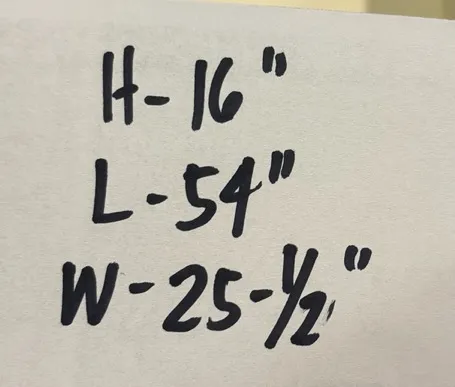 H-16"
L-54"
W-25-1/2"